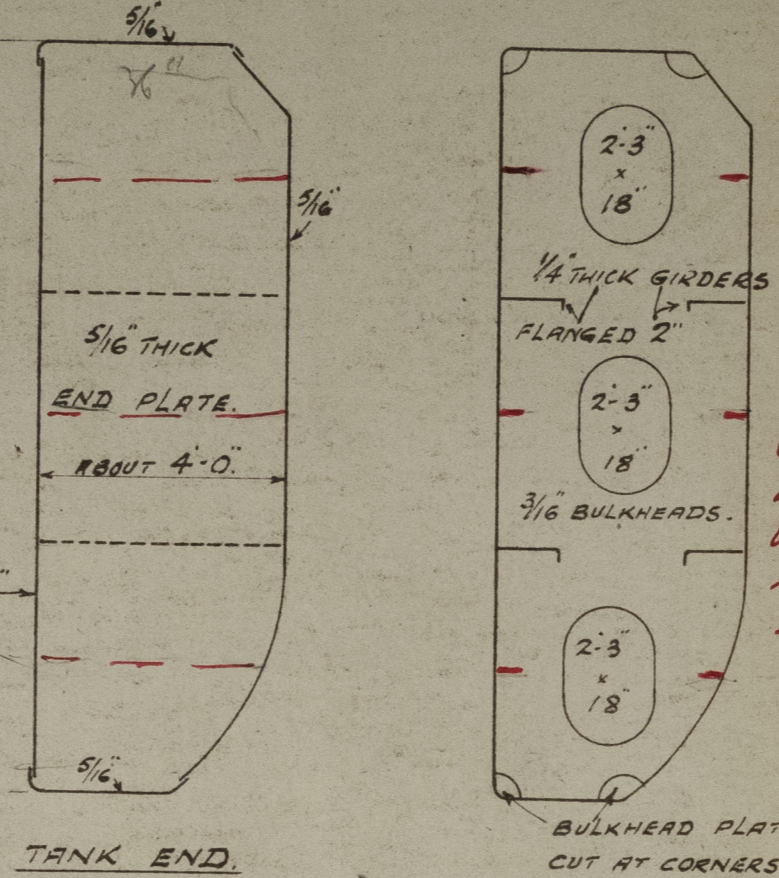 5/16"
36"
5/16"
5/16" THICK
END PLATE.
ABOUT 4'-0".
5/16"
TANK END.
2'-3"
x
18"
1/4" THICK GIRDERS
FLANGED 2"
2'-3"
x
18"
3/16" BULKHEADS.
2'-3"
x
18"
BULKHEAD PLAT
CUT AT CORNERS